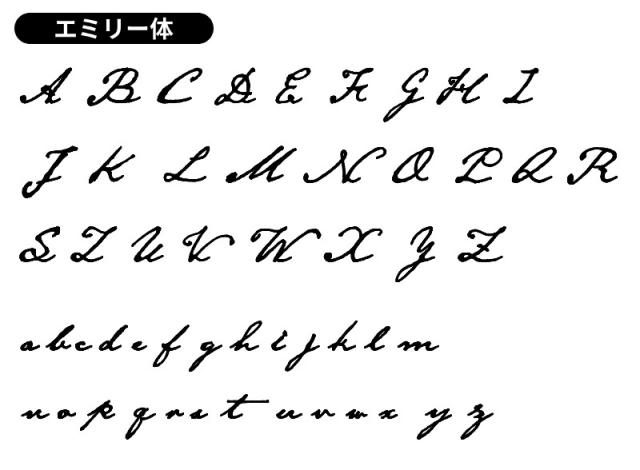 エミリー体
A B C D E F G H I
J K L M N O P Q R
S T U V W X Y Z
a b c d e f g h i j k l m
n o p q r s t u v w x y z